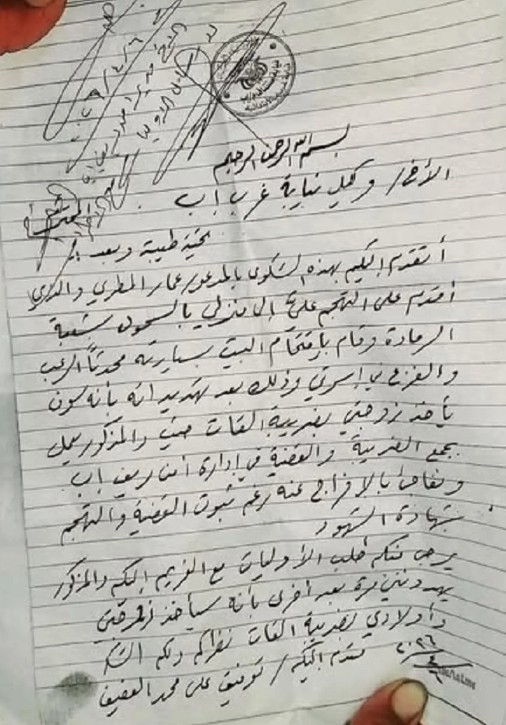 بسم الله الرحمن الرحيم
الأخ/ وكيل نيابة غرب إب المحترم
تحية طيبة وبعد
أتقدم إليكم بهذه الشكوى بالمدعو/ عمار المطري والذي
أقدم على التهجم على إلى منزلي بالسحول شعبة
الرمادة وقام بإقتحام البيت بسيارته محدثاً الرعب
والفزع في أسرتي وذلك بعد تهديداته بأنه سوف
يأخذ زوجتي بضريبة القات حيث والمذكور يعمل
بجمع الضريبة والقضية في إدارة أمن ريف إب
ونفاجئ بالإفراج عنه رغم ثبوت القضية والتهجم
بشهادة الشهود
يرجى منكم طلب الأوليات مع الغريم إليكم والمذكور
يهددني مرة بعد أخرى بأنه سيأخذ زوجتي
وأولادي بضريبة القات نظركم ولكم الشكر
مقدم إليكم/ توفيق علي محمد العفيف